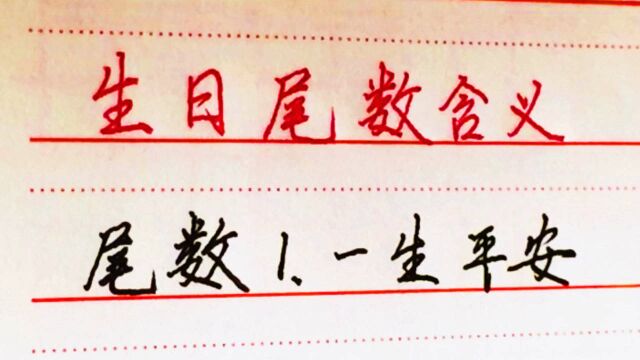 生日尾数含义
尾数1、一生平安